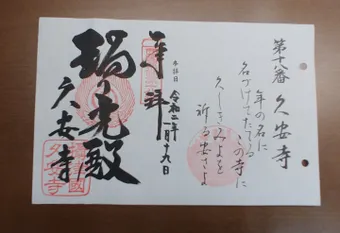 第十八番 久安寺
年の名に
名づけてたてる
この寺に
久しきみよを
祈る安さよ
奉拝
参詣日
令和二年一月十九日
瑠璃光殿
久安寺